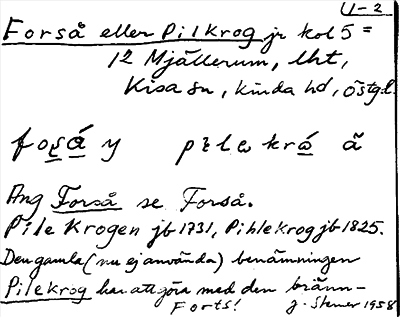 1-2
Forså eller Pilkrog jr kol 5 =
12 Mjällerum, lht,
Kisa sn, kinda hd, östg.l.
foså y pilekrå ã
Ang Forså se. Forså.
Pile Krogen jb 1731, Pihlekrog jb 1825.
Den gamla (nu ej använda) benämningen
Pilekrog har att göra med den bränn-
Forts! J. Stener 1958